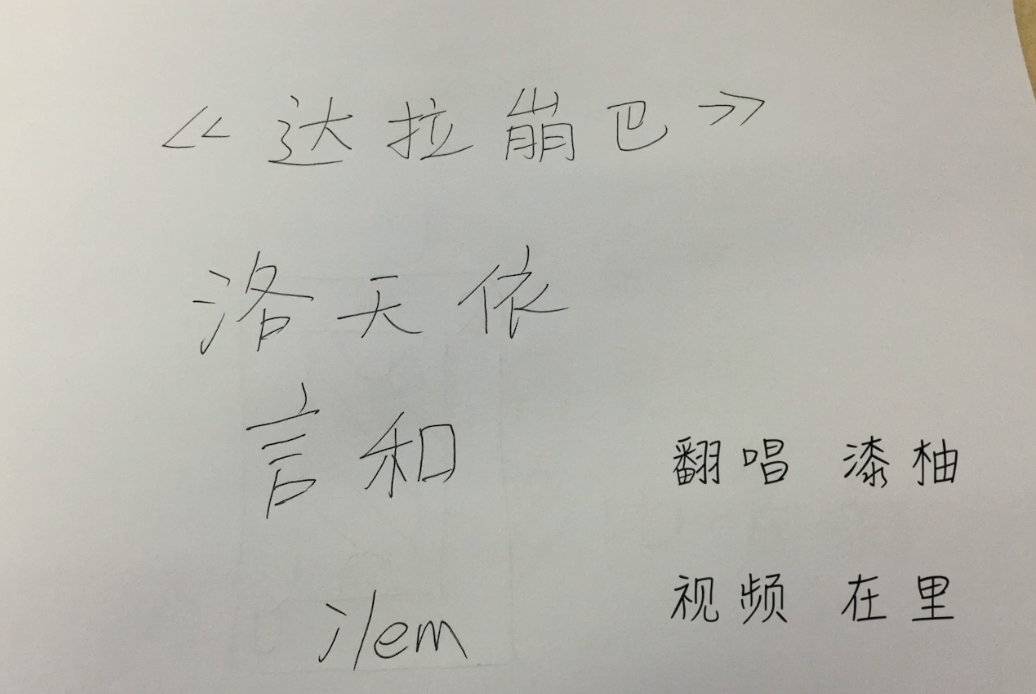 《达拉崩巴》
洛天依
言和
ilem
翻唱 漆柚
视频 在里